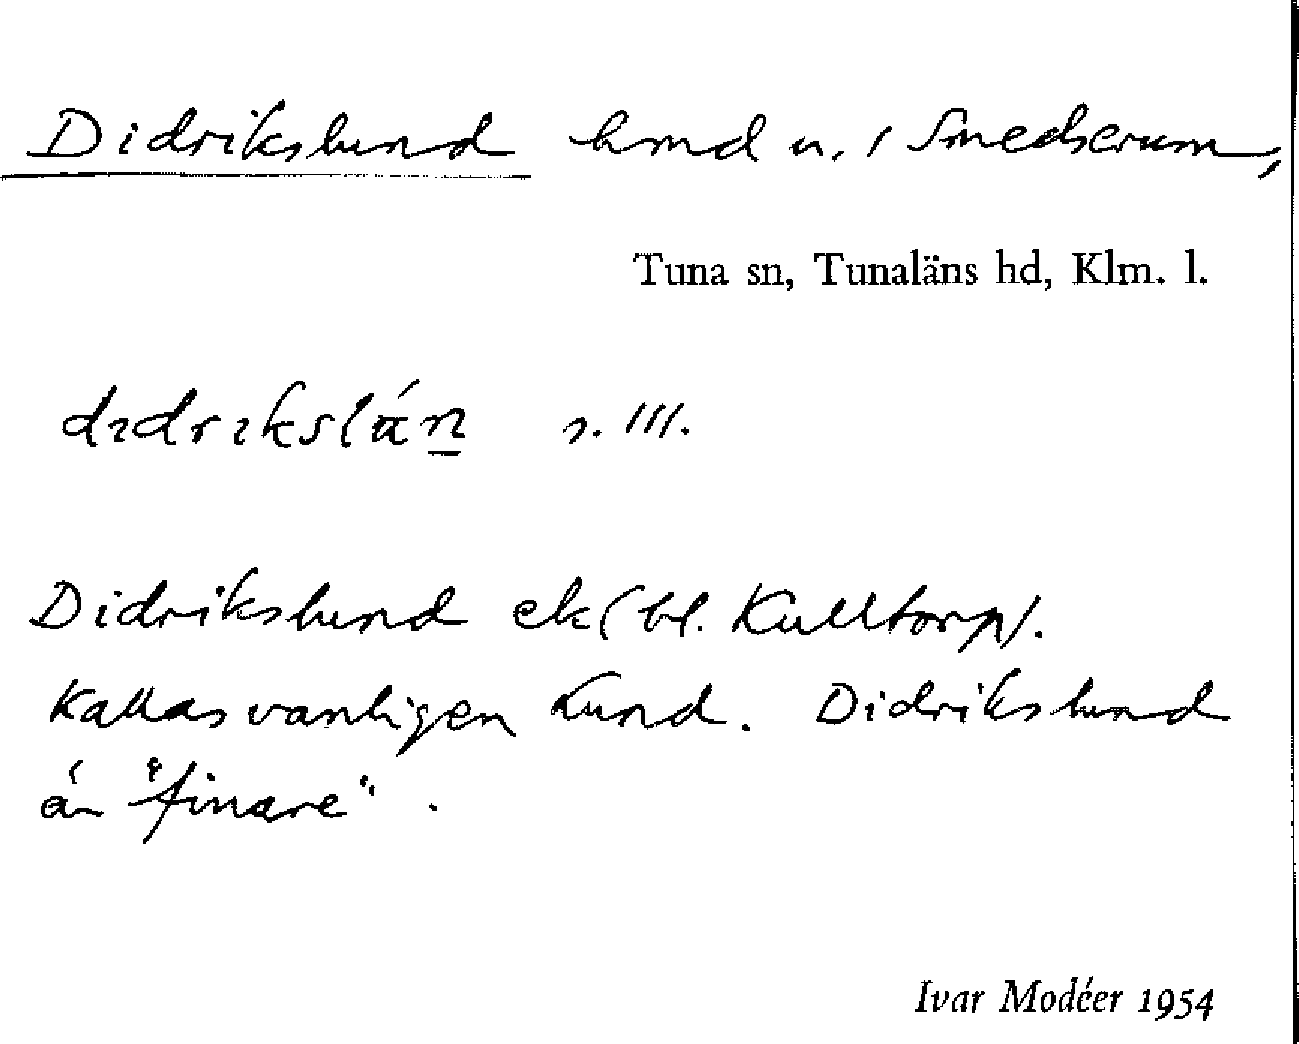 Didrikslund hmd u. / Smedserum,
Tuna sn, Tunaläns hd, Klm. l.
dıdrıkslún s. III.
Didrikslund ek (bl. Kulltorp).
Kallas vanligen Lund. Didrikslund
är "finare".
Ivar Modéer 1954